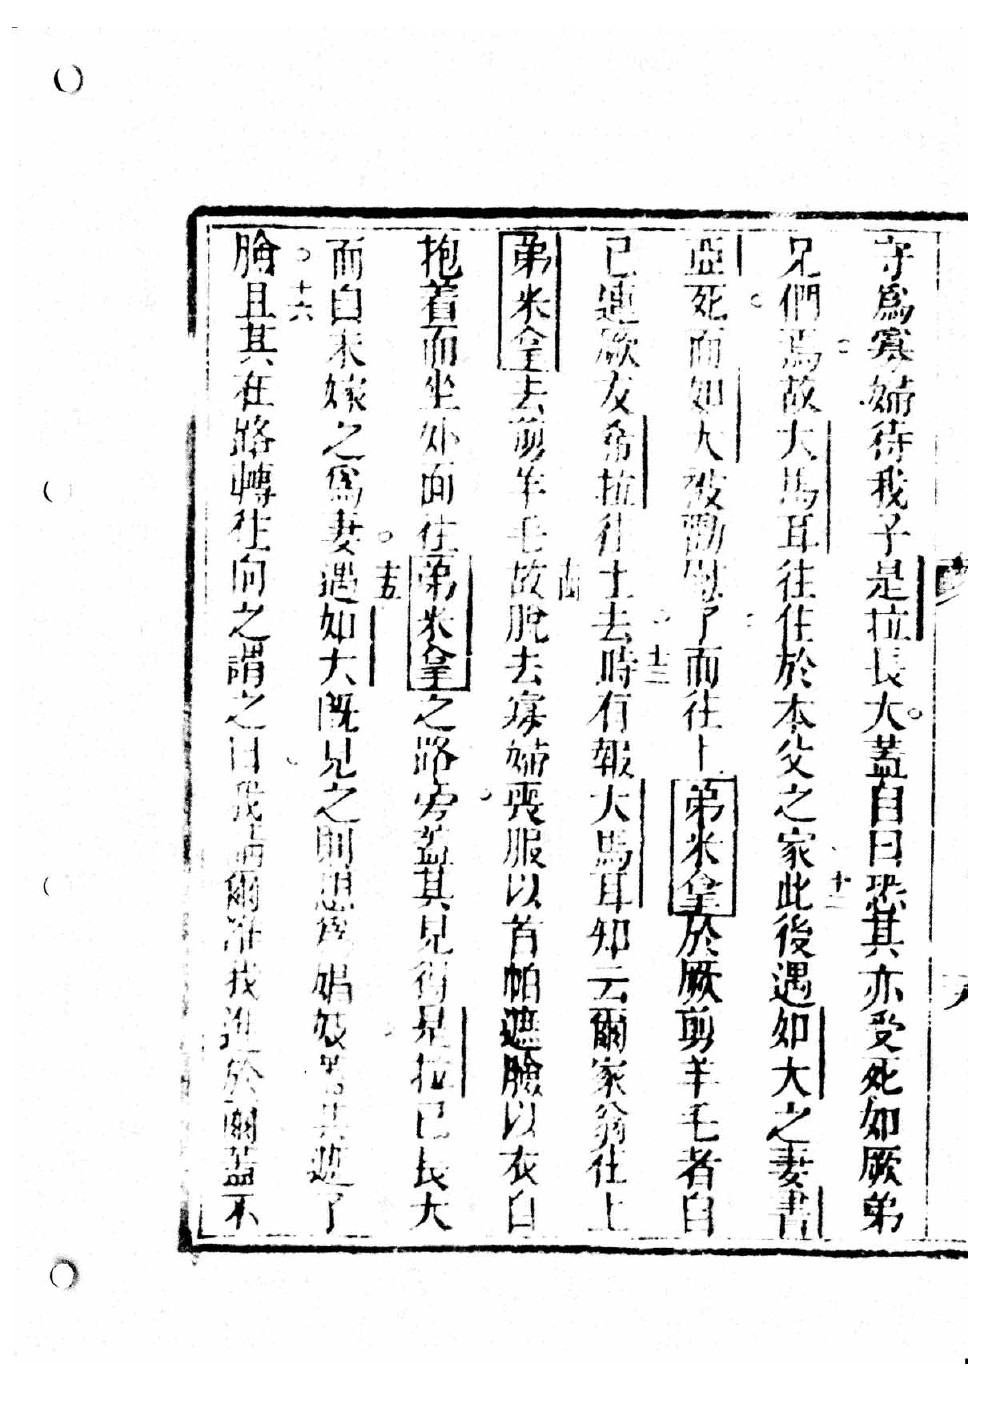 守爲寡婦待我子是拉長大蓋自曰恐其亦受死如厥弟
兄們焉故大馬耳往住於本父之家十二此後遇如大之妻書
亞死而如大被勸慰了而往上弟米拿於厥剪羊毛者自
已連厥友希拉往上去十三時有報大馬耳知云爾家翁往上
弟米拿去剪羊毛十四故脫去寡婦喪服以首帕遮臉以衣自
抱着而坐外面在弟米拿之路旁蓋其見得是拉已長大
而自未嫁之爲妻十五遇如大旣見之則想爲娼妓者其遮了
臉十六且其在路轉往向之謂之曰我請爾准我進於爾蓋不